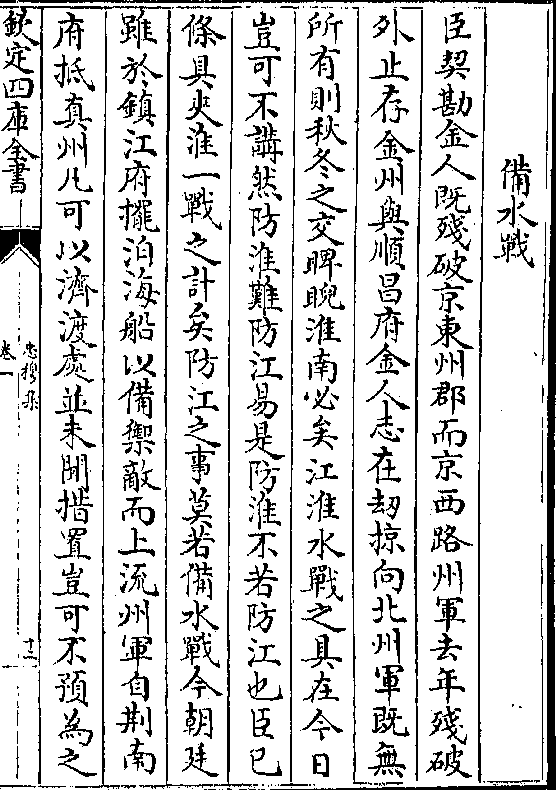 備水戰
臣契勘金人既殘破京東州郡而京西路州軍去年殘破
外止存金州與順昌府金人志在刼掠向北州軍既無
所有則秋冬之交睥睨淮南必矣江淮水戰之具在今日
豈可不講然防淮難防江易是防淮不若防江也臣已
條具夾淮一戰之計矣防江之事莫若備水戰今朝廷
雖於鎮江府擺泊海船以備禦敵而上流州軍自荆南
府抵真州凡可以濟渡處並未聞措置豈可不預為之
欽定四庫全書
忠穆集
卷一
十二